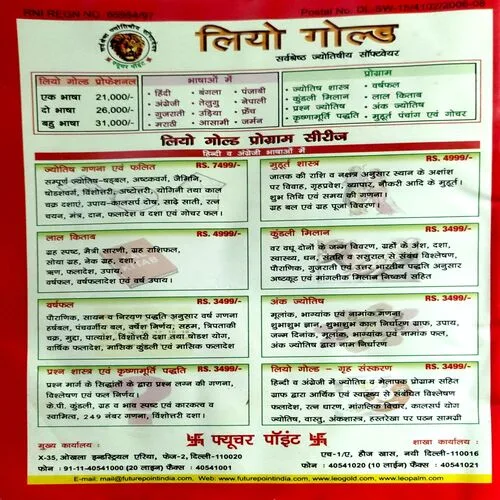 RNI REGN NO. 65984/97
Postal No. DL-SW-15/4102/2006-08
सर्वश्रेष्ठ ज्योतिषीय सॉफ्टवेयर
फ्यूचर पॉइंट
लियो गोल्ड
सर्वश्रेष्ठ ज्योतिषीय सॉफ्टवेयर
लियो गोल्ड प्रोफेशनल
एक भाषा 21,000/-
दो भाषा 26,000/-
बहु भाषा 31,000/-
भाषाओं में
• हिंदी • बंगला • पंजाबी
• अंग्रेजी • तेलुगु • नेपाली
• गुजराती • उड़िया • फ्रेंच
• मराठी • आसामी • जर्मन
प्रोग्राम
• ज्योतिष शास्त्र • वर्षफल
• कुंडली मिलान • लाल किताब
• प्रश्न ज्योतिष • अंक ज्योतिष
• कृष्णामूर्ति पद्धति • मुहूर्त पंचांग एवं गोचर
लियो गोल्ड प्रोग्राम सीरीज
हिन्दी व अंग्रेजी भाषाओं में
ज्योतिष गणना एवं फलित RS. 7499/-
सम्पूर्ण ज्योतिष-षड्बल, अष्टकवर्ग, जैमिनि,
षोडशवर्ग, विंशोत्तरी, अष्टोत्तरी, योगिनी तथा काल
चक्र दशाएं, उपाय-कालसर्प दोष, साढ़े साती, रत्न
चयन, मंत्र, दान, फलादेश व दशा एवं गोचर फल।
मुहूर्त शास्त्र RS. 4999/-
जातक की राशि व नक्षत्र अनुसार स्थान के अक्षांश
पर विवाह, गृहप्रवेश, व्यापार, नौकरी आदि के मुहूर्त।
शुभ तिथि एवं समय की गणना।
ग्रह बल एवं ग्रह पूजा विवरण।
लाल किताब RS. 4999/-
ग्रह स्पष्ट, मैत्री सारणी, ग्रह राशिफल,
सोया ग्रह, नेक ग्रह, दशा,
ऋण, फलादेश, उपाय,
वर्षफल, वर्षफलादेश एवं वर्ष उपाय।
कुंडली मिलान RS. 3499/-
वर वधू दोनों के जन्म विवरण, ग्रहों के अंश, दशा,
स्वास्थ्य, धन, संतति व ससुराल से संबंध विश्लेषण,
पौराणिक, गुजराती एवं उत्तर भारतीय पद्धति अनुसार
अष्टकूट एवं मांगलिक मिलान निष्कर्ष सहित
वर्षफल RS. 3499/-
पौराणिक, सायन व निरयण पद्धति अनुसार वर्ष गणना
हर्षबल, पंचवर्गीय बल, वर्षेश निर्णय; सहम, त्रिपताकी
चक्र, मुद्दा, पात्यांश, विंशोत्तरी दशा तथा षोडश योग,
वार्षिक फलादेश, मासिक कुंडली एवं मासिक फलादेश
अंक ज्योतिष RS. 3499/-
मूलांक, भाग्यांक एवं नामांक गणना,
शुभाशुभ ज्ञान, शुभाशुभ काल निर्धारण ग्राफ, उपाय,
जन्म दिनांक, मूलांक, भाग्यांक एवं नामांक फल,
अंक ज्योतिष द्वारा नाम निर्धारण
प्रश्न शास्त्र एवं कृष्णामूर्ति पद्धति RS. 3499/-
प्रश्न मार्ग के सिद्धांतों के द्वारा प्रश्न लग्न की गणना,
विश्लेषण एवं फल निर्णय।
के.पी. कुंडली, ग्रह व भाव स्पष्ट एवं कारकत्व व
स्वामित्व, 249 नंबर गणना, विंशोत्तरी दशा।
लियो गोल्ड - गृह संस्करण RS. 3499/-
हिन्दी व अंग्रेजी में ज्योतिष व मेलापक प्रोग्राम सहित
ग्राफ द्वारा आर्थिक एवं स्वास्थ्य से संबंधित विश्लेषण
फलादेश, रत्न धारण, मांगलिक विचार, कालसर्प योग
ज्योतिष, वास्तु, अंकशास्त्र, हस्तरेखा पर पठन सामग्री
मुख्य कार्यालय :
卐 फ्यूचर पॉइंट 卐
शाखा कार्यालय :
X-35, ओखला इन्डस्ट्रियल एरिया, फेज-2, दिल्ली-110020
एच-1/ए, हौज खास, नयी दिल्ली - 110016
फोन : 91-11-40541000 (20 लाइन) फैक्स : 40541001
फोन : 40541020 (10 लाईन) फैक्स : 40541021
E-mail: mail@futurepointindia.com, Web: www.futurepointindia.com, www.leogold.com, www.leopalm.com